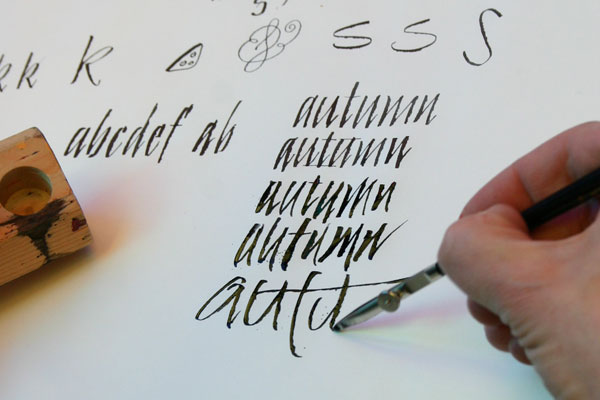 kk k s s S
abcdef ab
autumn
autumn
autumn
autumn
autu